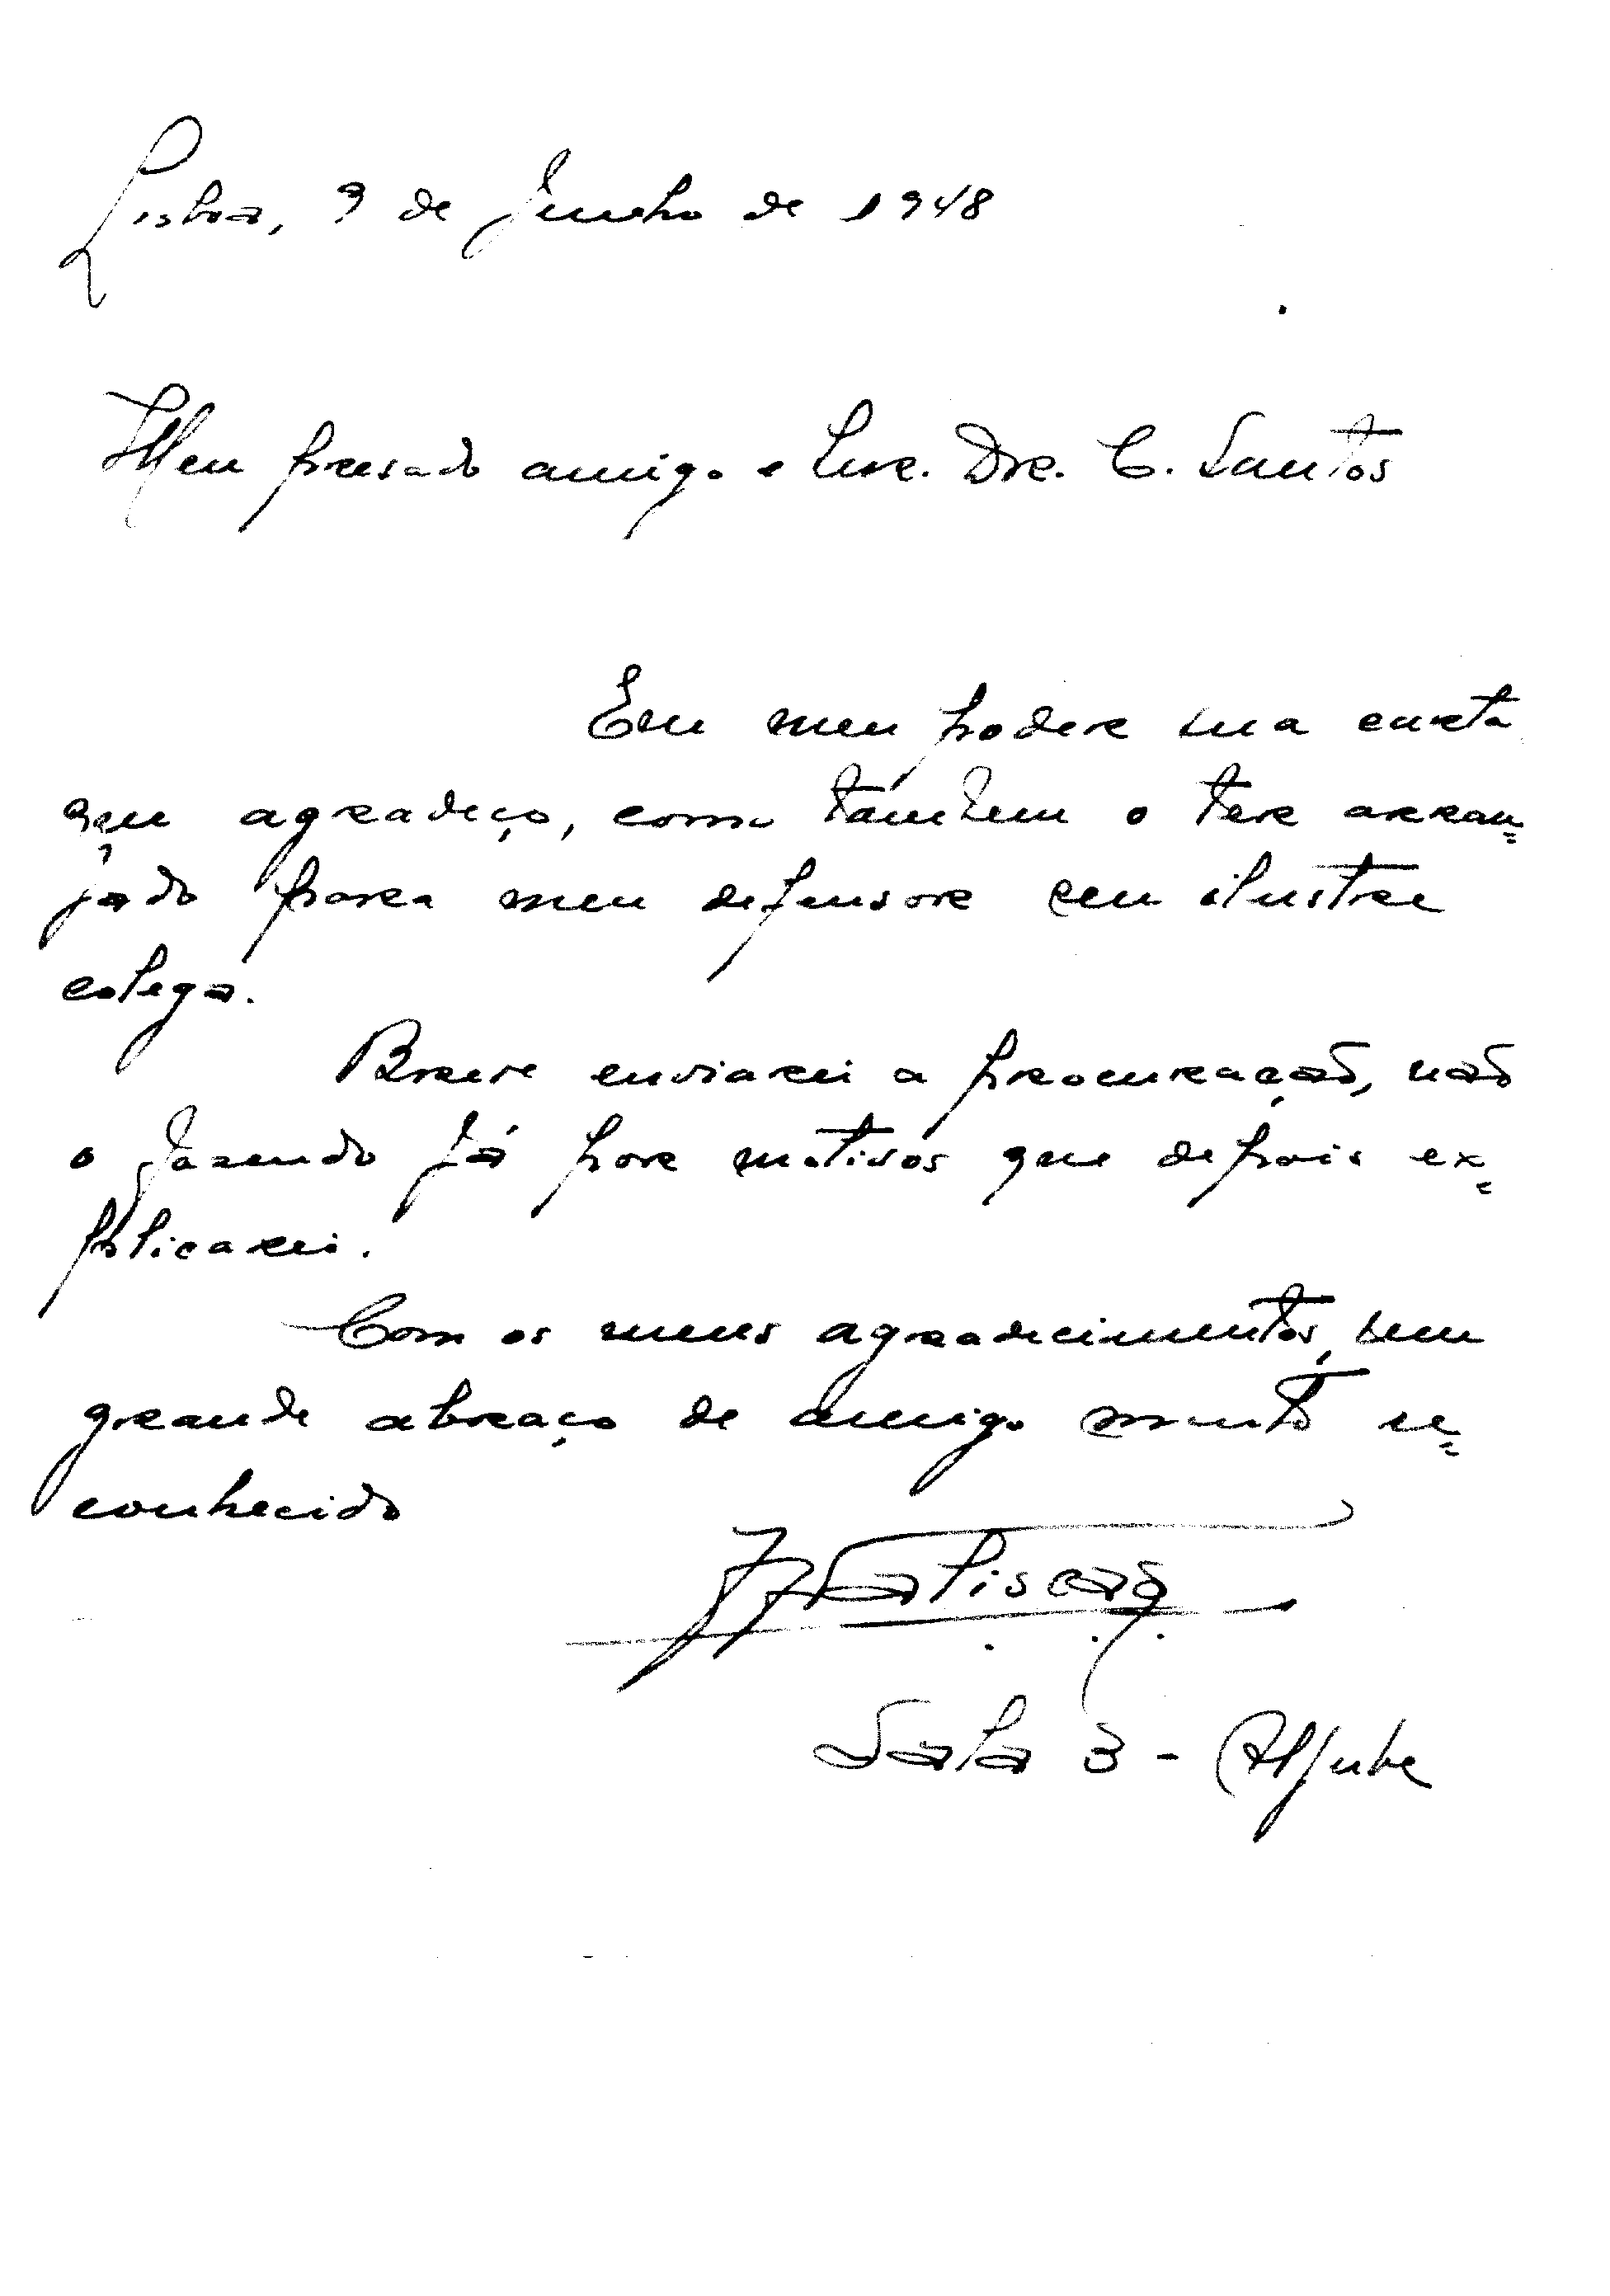 Lisboa, 9 de Junho de 1948
Meu presado amigo e Snr. Dr. C. Santos
Em meu poder sua carta
que agradeço, como tambem o ter arran=
jado para meu defensor seu ilustre
colega.
Breve enviarei a procuração, não
o fazendo já por motivos que depois ex=
plicarei.
Com os meus agradecimentos, um
grande abraço de amigo muito re=
conhecido
Sala 3 - Aljube